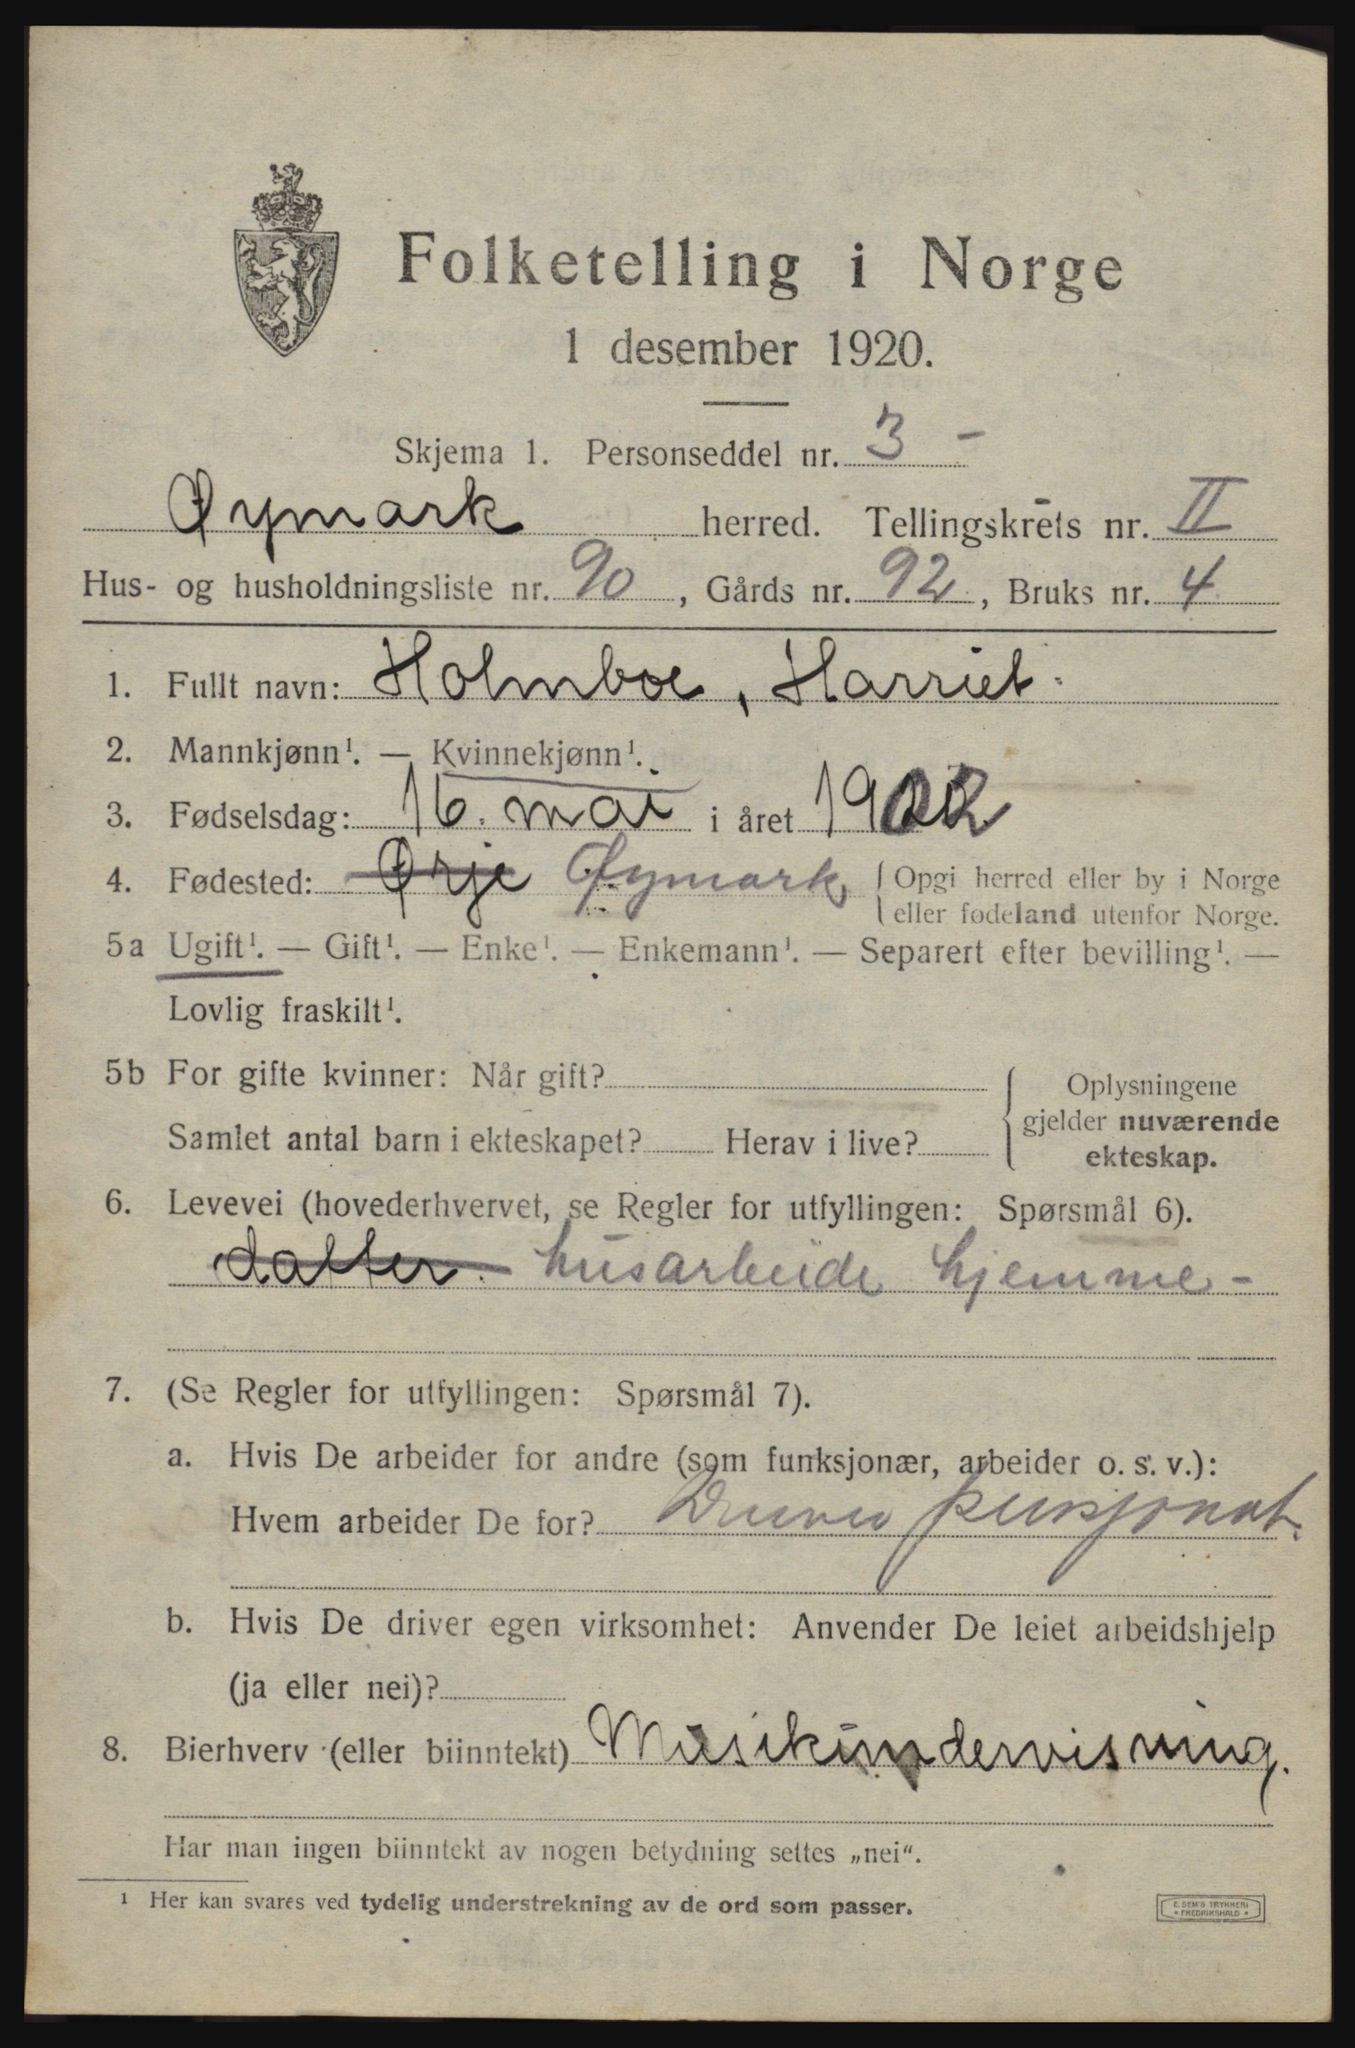 Folketelling i Norge
1 desember 1920.
Skjema 1. Personseddel nr. 3 –
Øymark herred. Tellingskrets nr. II
Hus- og husholdningsliste nr. 90, Gårds nr. 92, Bruks nr. 4
1. Fullt navn: Holmboe, Harriet.
2. Mannkjønn¹. — Kvinnekjønn¹.
3. Fødselsdag: 16. mai i året 1902
4. Fødested: Ørje Øymark { Opgi herred eller by i Norge
eller fødeland utenfor Norge.
5a Ugift¹. — Gift¹. — Enke¹. — Enkemann¹. — Separert efter bevilling¹. —
Lovlig fraskilt¹.
5b For gifte kvinner: Når gift? { Oplysningene
gjelder nuværende
Samlet antal barn i ekteskapet? Herav i live? ekteskap.
6. Levevei (hovederhvervet, se Regler for utfyllingen: Spørsmål 6).
datter. husarbeide hjemme –
7. (Se Regler for utfyllingen: Spørsmål 7).
a. Hvis De arbeider for andre (som funksjonær, arbeider o. s. v.):
Hvem arbeider De for? pensjonat.
b. Hvis De driver egen virksomhet: Anvender De leiet arbeidshjelp
(ja eller nei)?
8. Bierhverv (eller biinntekt) Musikundervisning.
Har man ingen biinntekt av nogen betydning settes „nei“.
¹ Her kan svares ved tydelig understrekning av de ord som passer.
E. SEM'S TRYKKERI
• FREDRIKSHALD •